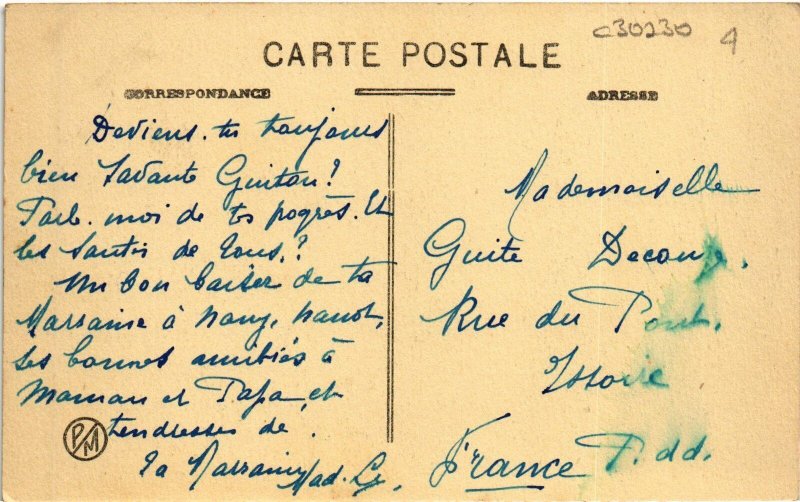 C30230 4
CARTE POSTALE
CORRESPONDANCE
ADRESSE
Deviens-tu toujours
bien savante Guitou?
Parle-moi de tes pogrès. Et
les santés de tous?
Un bon baiser de ta
Marraine à
ses bonnes amitiés à
Maman et Papa, et
tendresses de
ta Marraine Mad.
PM
Mademoiselle
Guite
Rue du Pont.
Issoire
P. dd.
France